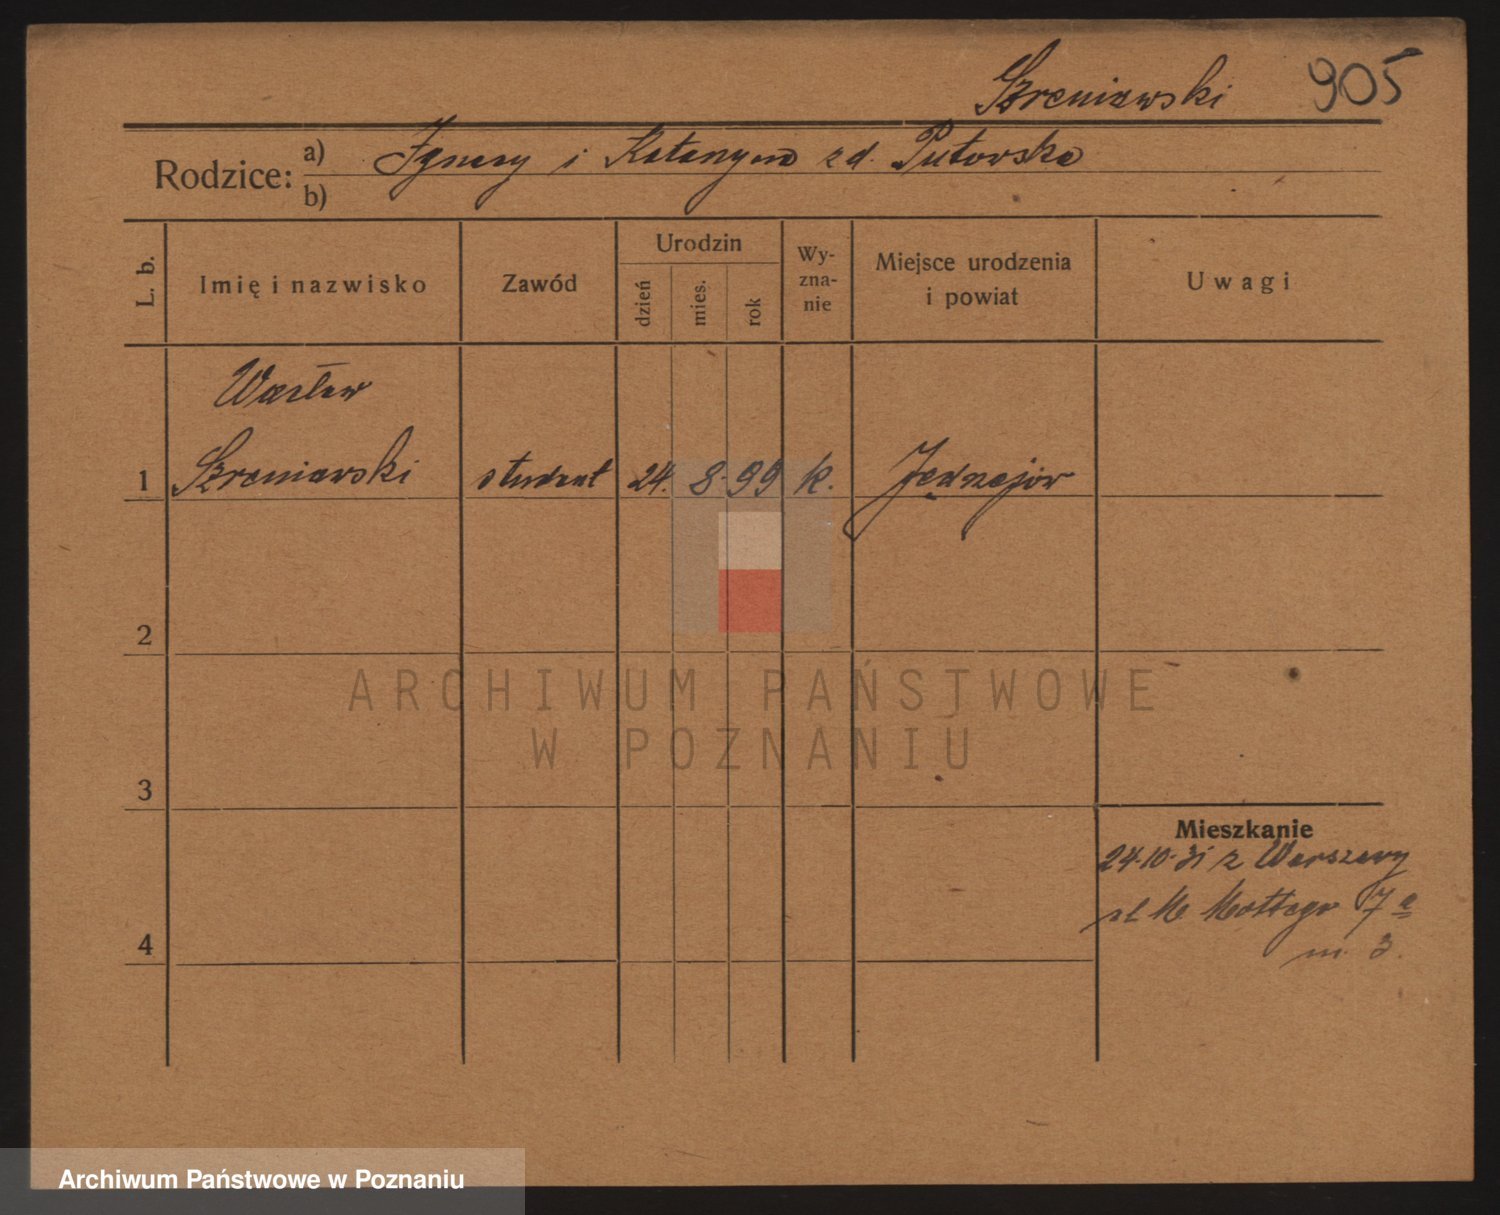 Szreniawski 905
Rodzice: a) Ignacy i Katarzyna zd. Putowska
b)
L. b. Imię i nazwisko Zawód Urodzin dzień mies. rok Wyznanie Miejsce urodzenia i powiat Uwagi
Wacław
1 Szreniawski student 24. 8. 99 k. Jędrzejów
2
ARCHIWUM PAŃSTWOWE
W POZNANIU
3
Mieszkanie
24.10.31 z Warszawy
M Mottego 7 a
4
m. 3.
Archiwum Państwowe w Poznaniu